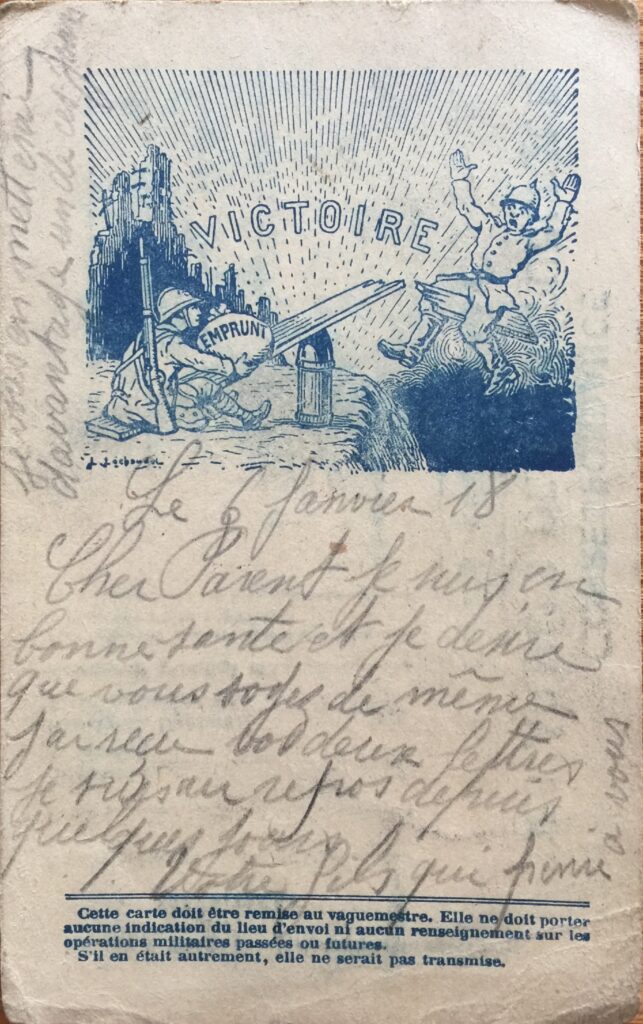 VICTOIRE
EMPRUNT
Le 6 Janvier 18
Cher Parent Je suis en
bonne sante et je desire
que vous soyes de même
J'ai reçu vos deux lettres
Je suis au repos depuis
quelques jours
Votre fils qui pense
a vous
Je vous en mettrai
davantage une autre fois
Cette carte doit être remise au vaguemestre. Elle ne doit porter
aucune indication du lieu d'envoi ni aucun renseignement sur les
opérations militaires passées ou futures.
S'il en était autrement, elle ne serait pas transmise.